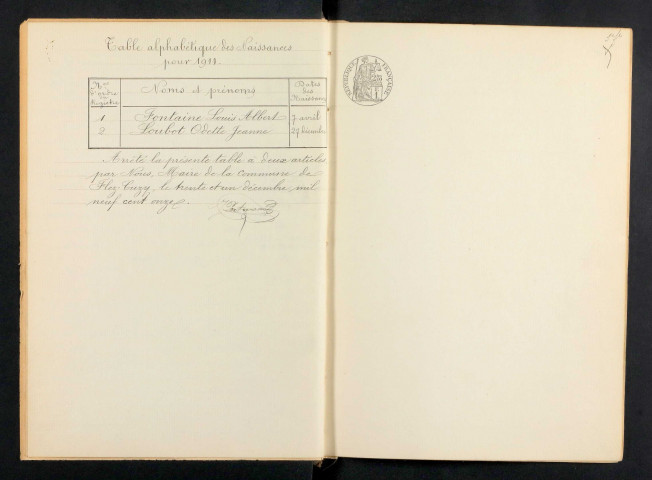 Table alphabétique des Naissances
pour 1911.
Nos d'ordre du Registre
Noms et prénoms
Dates des Naissances
1 Fontaine Louis Albert 7 avril
2 Loubot Odette Jeanne 27 décembre
Arrêté la présente table à deux articles
par Nous, Maire de la commune de
Flez-Cuzy, le trente et un décembre mil
neuf cent onze.
RÉPUBLIQUE FRANÇAISE